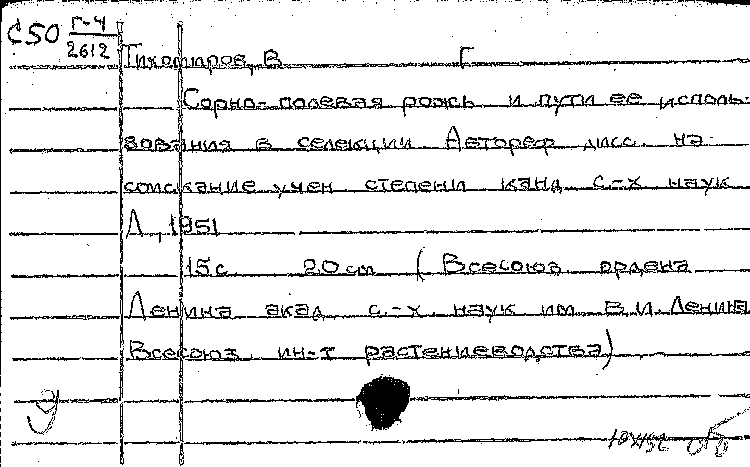 С50 Г-4
2612
Тихомиров, В Г
Сорно-полевая рожь и пути ее исполь-
зования в селекции. Автореф дисс. на
соискание учен степени канд с.-х наук
Л, 1951
15с 20см (Всесоюз ордена
Ленина акад с.-х. наук им В.И. Ленина
Всесоюз ин-т растениеводства)